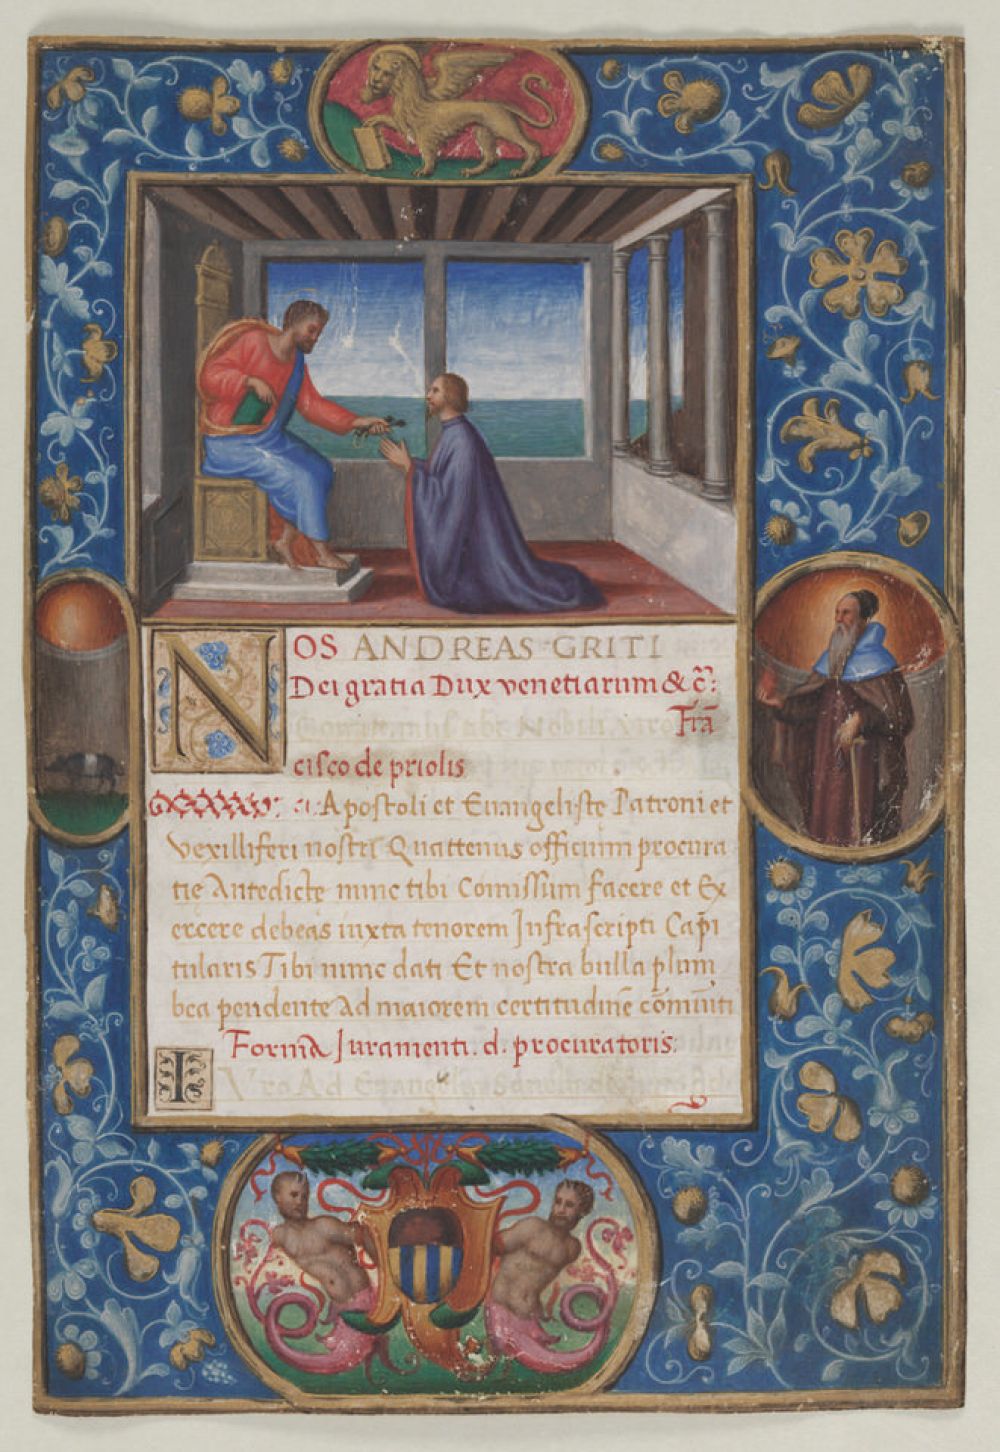 NOS ANDREAS GRITI
Dei gratia Dux venetiarum & c̃:
Frã
cisco de priolis
Apostoli et Euangelistę Patroni et
vexilliferi nostri Quattenus officium procura
tię Antedictę nunc tibi Comissum facere et Ex
ercere debeas iuxta tenorem Infrascripti Capi
tularis Tibi nunc dati Et nostra bulla plum
bea pendente Ad maiorem certitudinẽ
Forma Iuramenti. d. procuratoris.
I